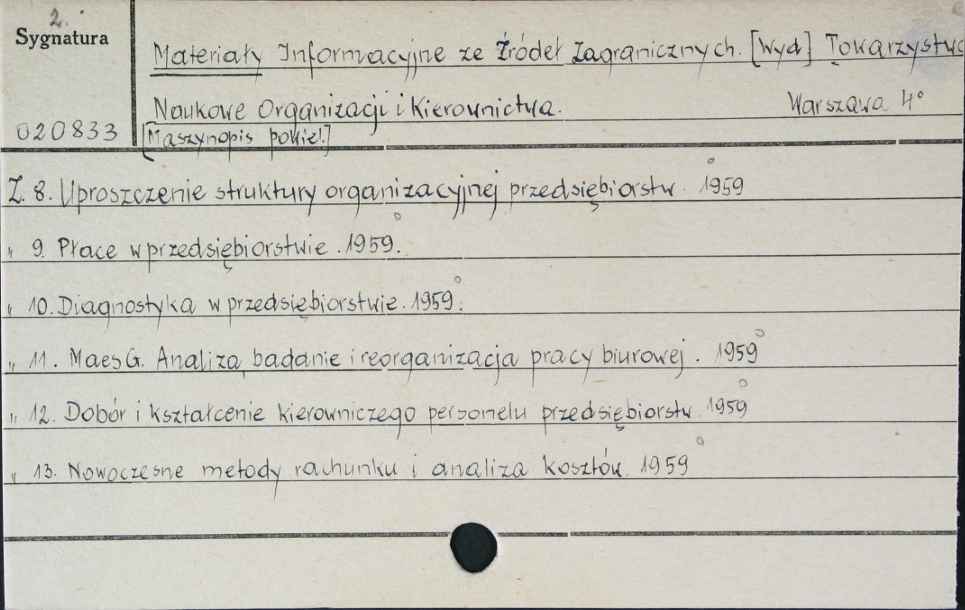 2.
Sygnatura
Materiały Informacyjne ze Źródeł Zagranicznych. [Wyd] Towarzystwo
Naukowe Organizacji i Kierownictwa. Warszawa 4°
020833 [Maszynopis powiel.]
Z. 8. Uproszczenie struktury organizacyjnej przedsiębiorstw. 1959
" 9. Płace w przedsiębiorstwie. 1959.
" 10. Diagnostyka w przedsiębiorstwie. 1959.
" 11. Maes G. Analiza, badanie i reorganizacja pracy biurowej. 1959
" 12. Dobór i kształcenie kierowniczego personelu przedsiębiorstw. 1959
" 13. Nowoczesne metody rachunku i analiza kosztów. 1959